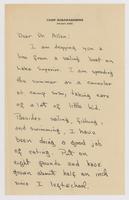 Dear Dr. Allen:
I am dropping you a
line from a sailing boat on
Lake Superior. I am spending
the summer as a counselor
at camp here, taking care
of a lot of little kids.
Besides sailing, fishing,
and swimming, I have
been doing a good job
of eating. Put on
eight pounds and have
grown about half an inch
since I left school.